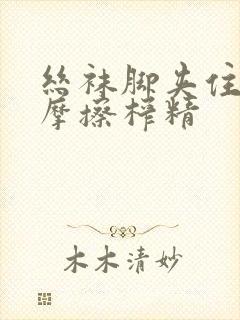 丝袜脚夹住
摩擦榨精
木木清妙